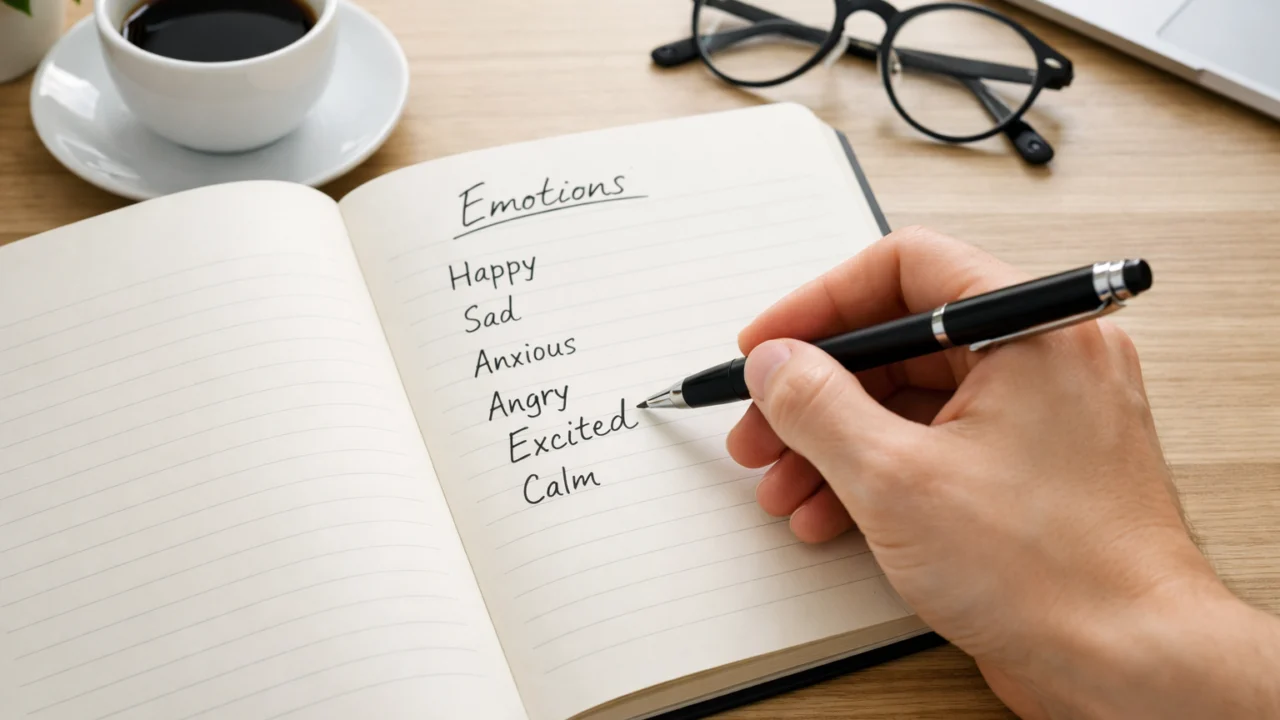 Emotions
Happy
Sad
Anxious
Angry
Excited
Calm